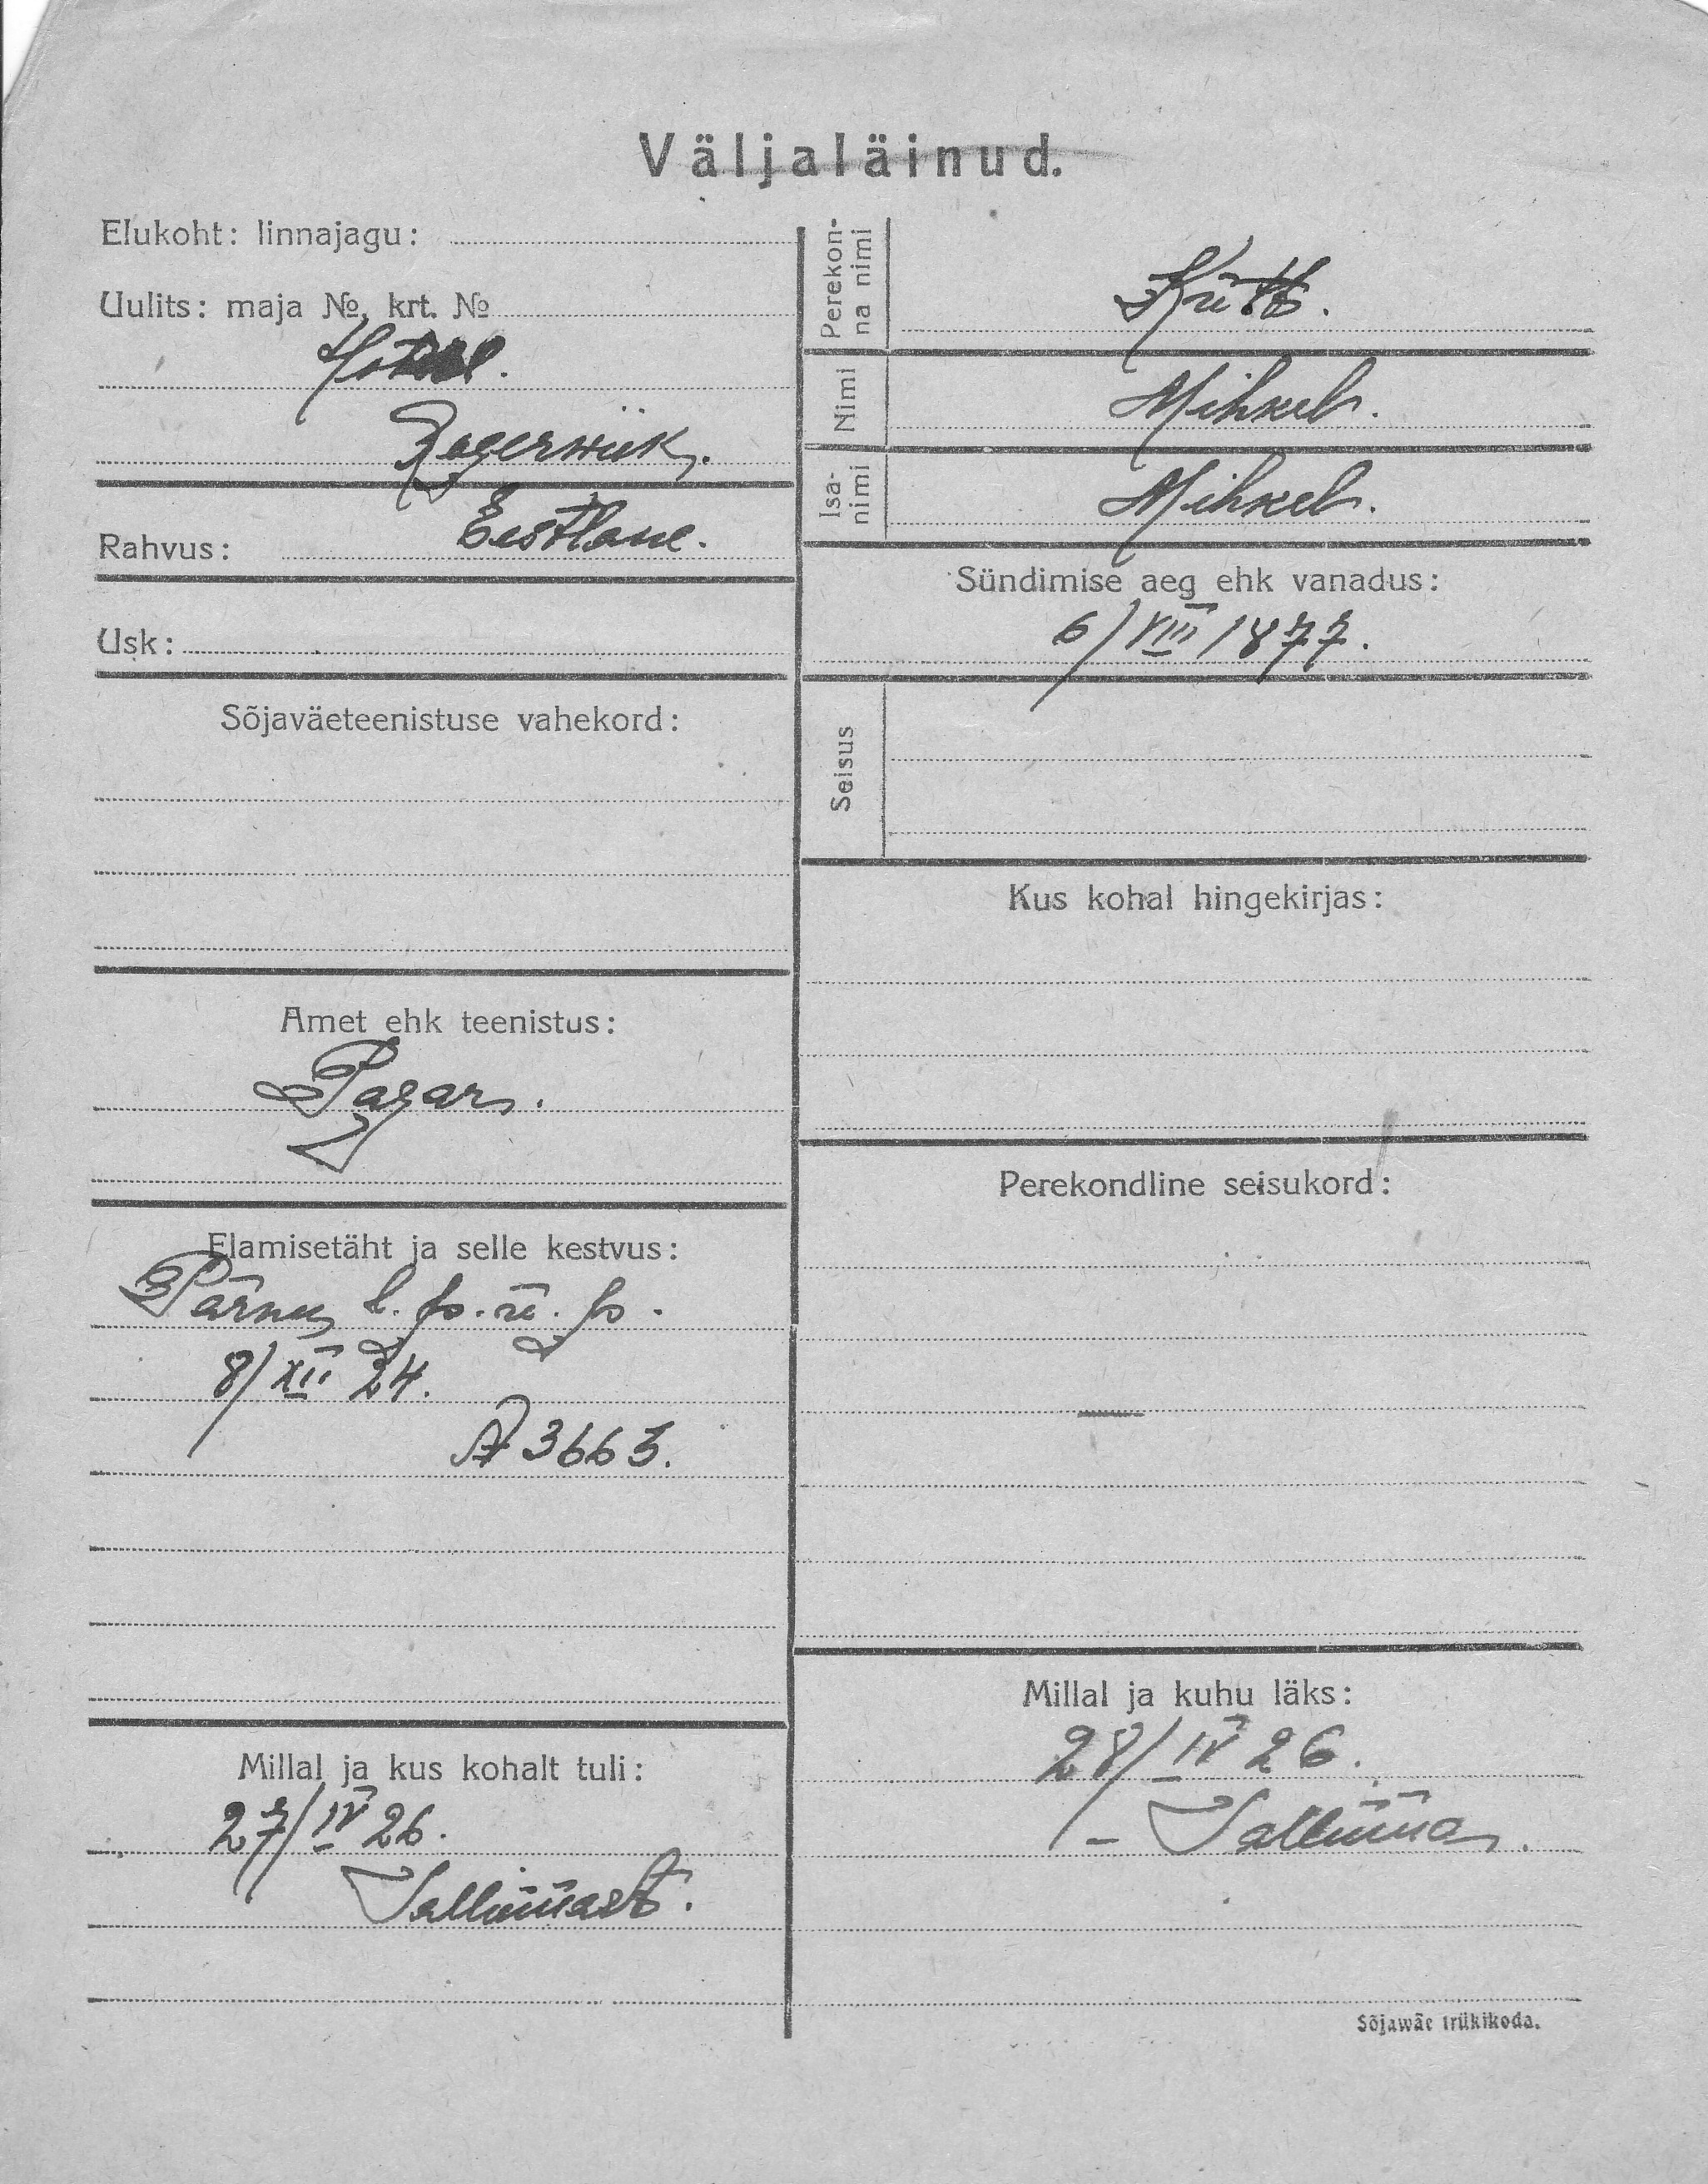 Väljaläinud.
Elukoht: linnajagu:
Uulits: maja №, krt. №
Hotel.
Rogerwiik.
Rahvus: Eestlane.
Usk:
Sõjaväeteenistuse vahekord:
Amet ehk teenistus:
Pagar.
Elamisetäht ja selle kestvus:
Pärnu l. p. ü. p.
8/XII 24.
A 3663.
Millal ja kus kohalt tuli:
27/IV 26.
Tallinnast.
Perekon-
na nimi
Kütt.
Nimi
Mihkel.
Isa-
nimi
Mihkel.
Sündimise aeg ehk vanadus:
6/VIII 1877.
Seisus
Kus kohal hingekirjas:
Perekondline seisukord:
Millal ja kuhu läks:
28/IV 26.
– Tallinna.
Sõjawäe trükikoda.